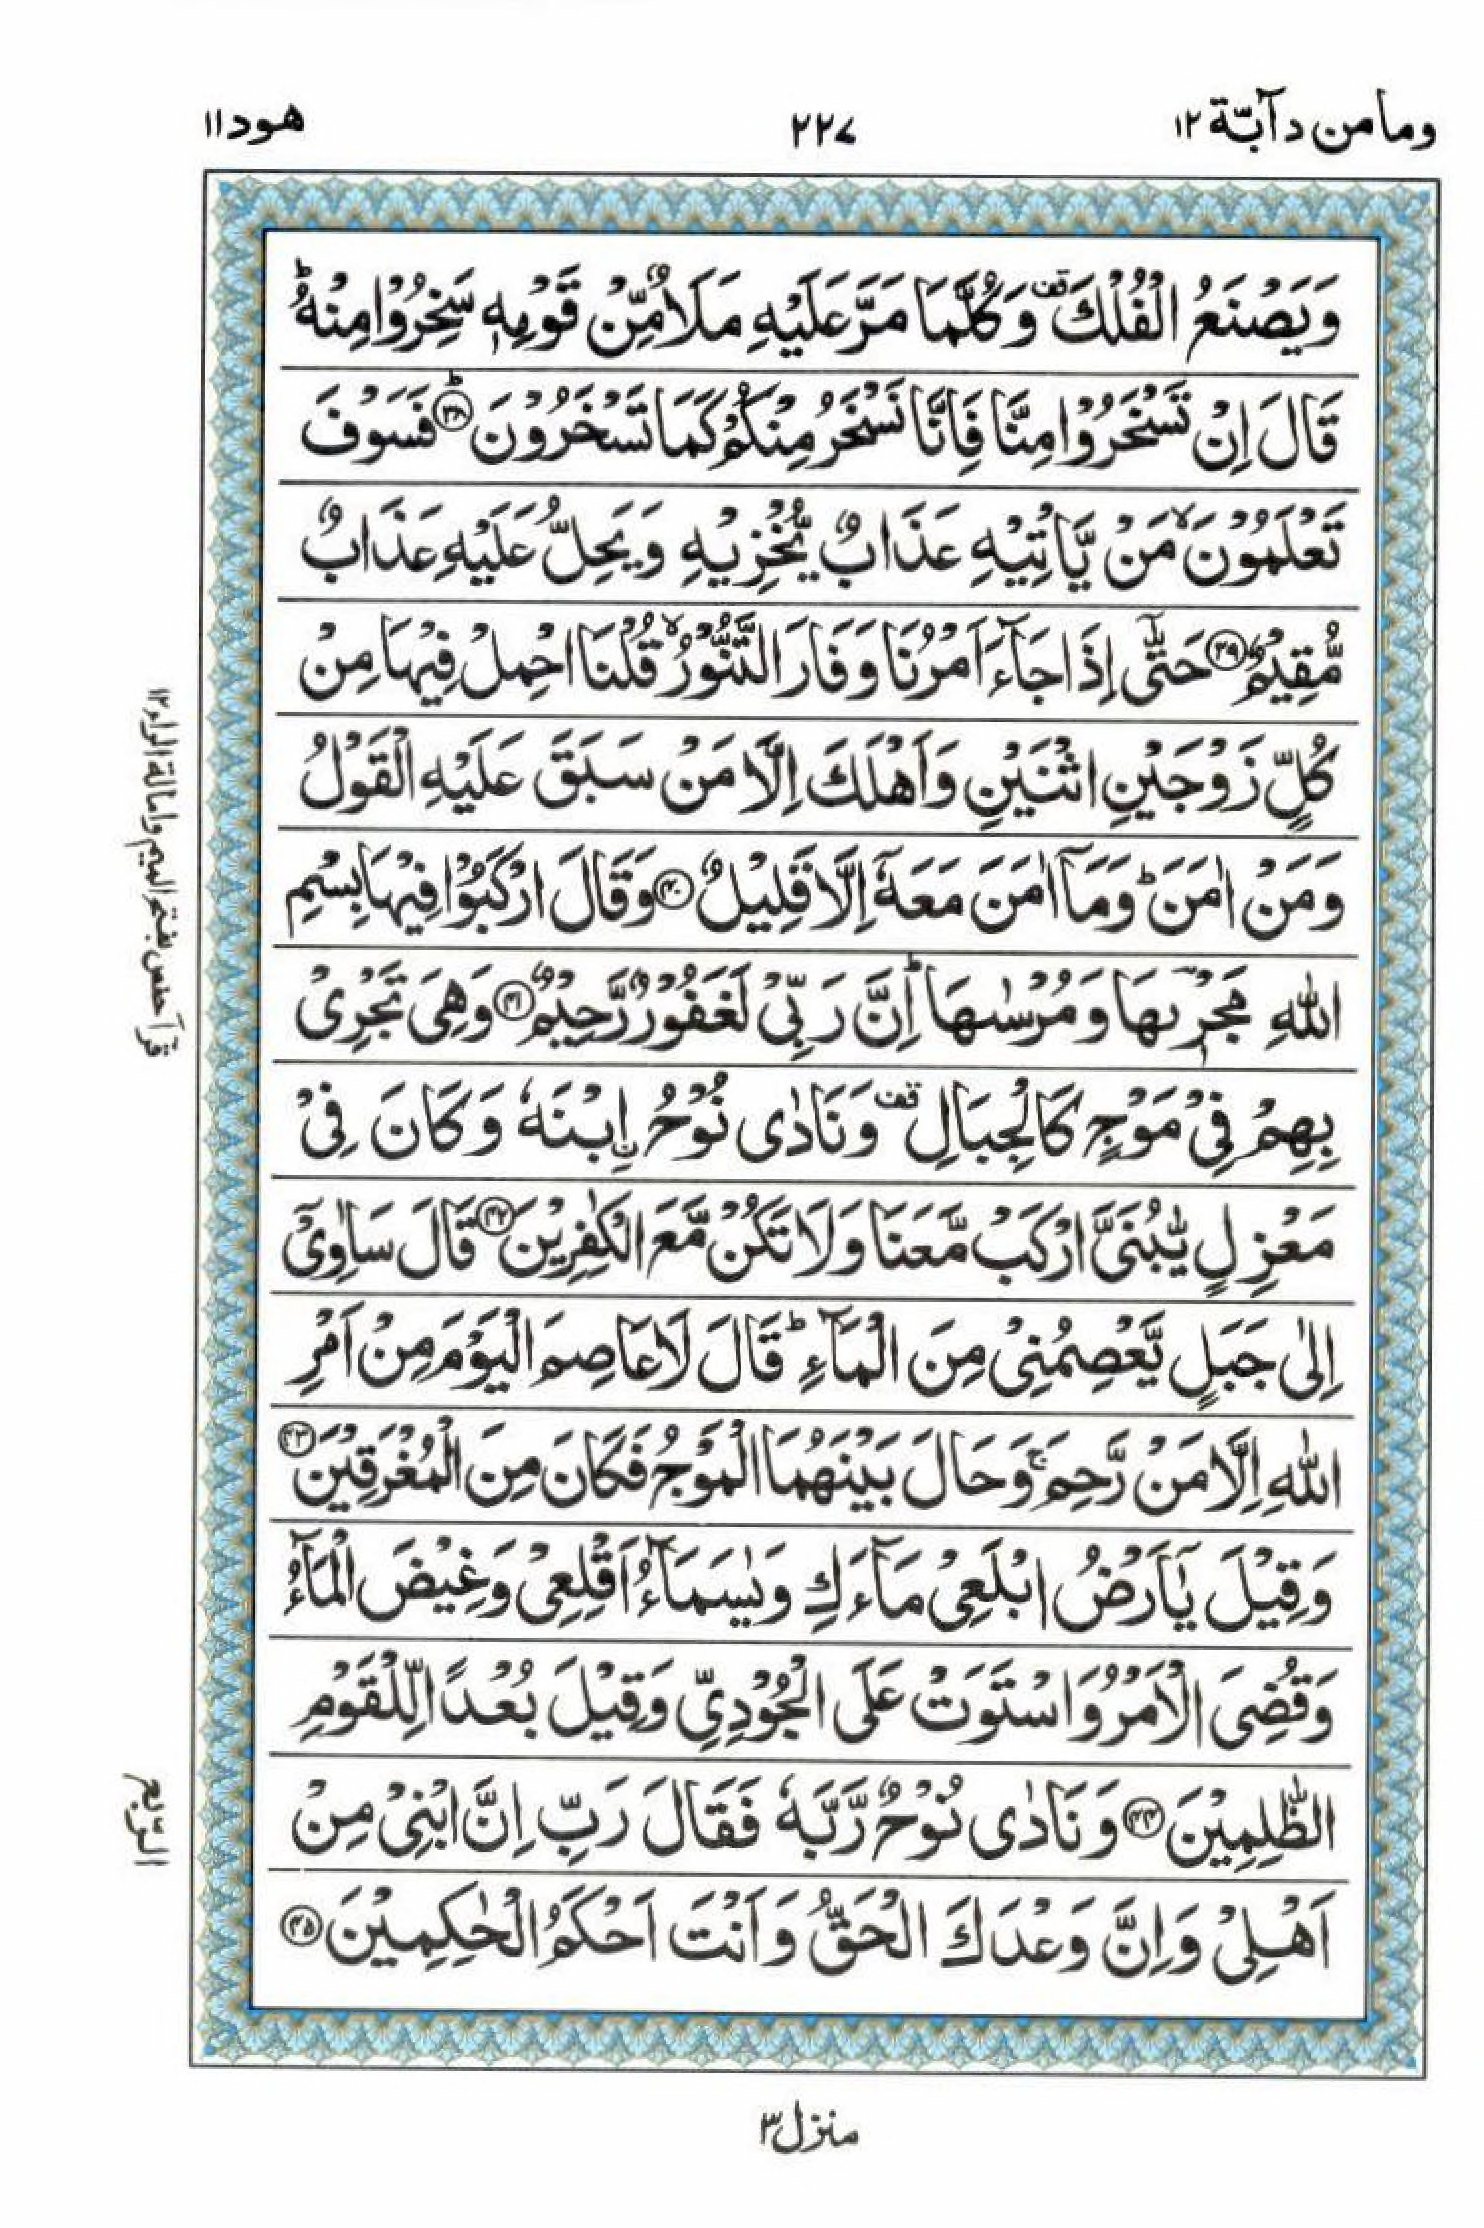 ومامن دآبّة ۱۲
۲۲۷
هود ۱۱
وَيَصْنَعُ الْفُلْكَ ۫ وَكُلَّمَا مَرَّ عَلَيْهِ مَلَاٌ مِّنْ قَوْمِهٖ سَخِرُوْا مِنْهُ ؕ
قَالَ اِنْ تَسْخَرُوْا مِنَّا فَاِنَّا نَسْخَرُ مِنْكُمْ كَمَا تَسْخَرُوْنَ ؕ۳۸ فَسَوْفَ
تَعْلَمُوْنَ ۙ مَنْ يَّاْتِيْهِ عَذَابٌ يُّخْزِيْهِ وَيَحِلُّ عَلَيْهِ عَذَابٌ
مُّقِيْمٌ ۳۹ حَتّٰٓى اِذَا جَآءَ اَمْرُنَا وَفَارَ التَّنُّوْرُ ۙ قُلْنَا احْمِلْ فِيْهَا مِنْ
كُلٍّ زَوْجَيْنِ اثْنَيْنِ وَاَهْلَكَ اِلَّا مَنْ سَبَقَ عَلَيْهِ الْقَوْلُ
وَمَنْ اٰمَنَ ؕ وَمَآ اٰمَنَ مَعَهٗٓ اِلَّا قَلِيْلٌ ۴۰ وَقَالَ ارْكَبُوْا فِيْهَا بِسْمِ
اللّٰهِ مَجْرٖىهَا وَمُرْسٰىهَا ؕ اِنَّ رَبِّىْ لَغَفُوْرٌ رَّحِيْمٌ ۴۱ وَهِىَ تَجْرِىْ
بِهِمْ فِىْ مَوْجٍ كَالْجِبَالِ ۫ وَنَادٰى نُوْحُ ۨابْنَهٗ وَكَانَ فِىْ
مَعْزِلٍ يّٰبُنَىَّ ارْكَبْ مَّعَنَا وَلَا تَكُنْ مَّعَ الْكٰفِرِيْنَ ۴۲ قَالَ سَاٰوِىْٓ
اِلٰى جَبَلٍ يَّعْصِمُنِىْ مِنَ الْمَآءِ ؕ قَالَ لَا عَاصِمَ الْيَوْمَ مِنْ اَمْرِ
اللّٰهِ اِلَّا مَنْ رَّحِمَ ۚ وَحَالَ بَيْنَهُمَا الْمَوْجُ فَكَانَ مِنَ الْمُغْرَقِيْنَ ۴۳
وَقِيْلَ يٰٓاَرْضُ ابْلَعِىْ مَآءَكِ وَيٰسَمَآءُ اَقْلِعِىْ وَغِيْضَ الْمَآءُ
وَقُضِىَ الْاَمْرُ وَاسْتَوَتْ عَلَى الْجُوْدِىِّ وَقِيْلَ بُعْدًا لِّلْقَوْمِ
الظّٰلِمِيْنَ ۴۴ وَنَادٰى نُوْحٌ رَّبَّهٗ فَقَالَ رَبِّ اِنَّ ابْنِىْ مِنْ
اَهْلِىْ وَاِنَّ وَعْدَكَ الْحَقُّ وَاَنْتَ اَحْكَمُ الْحٰكِمِيْنَ ۴۵
قرأ حفص بفتح الميم وامالة الراء ۱۲
الرّبع
منزل ۳